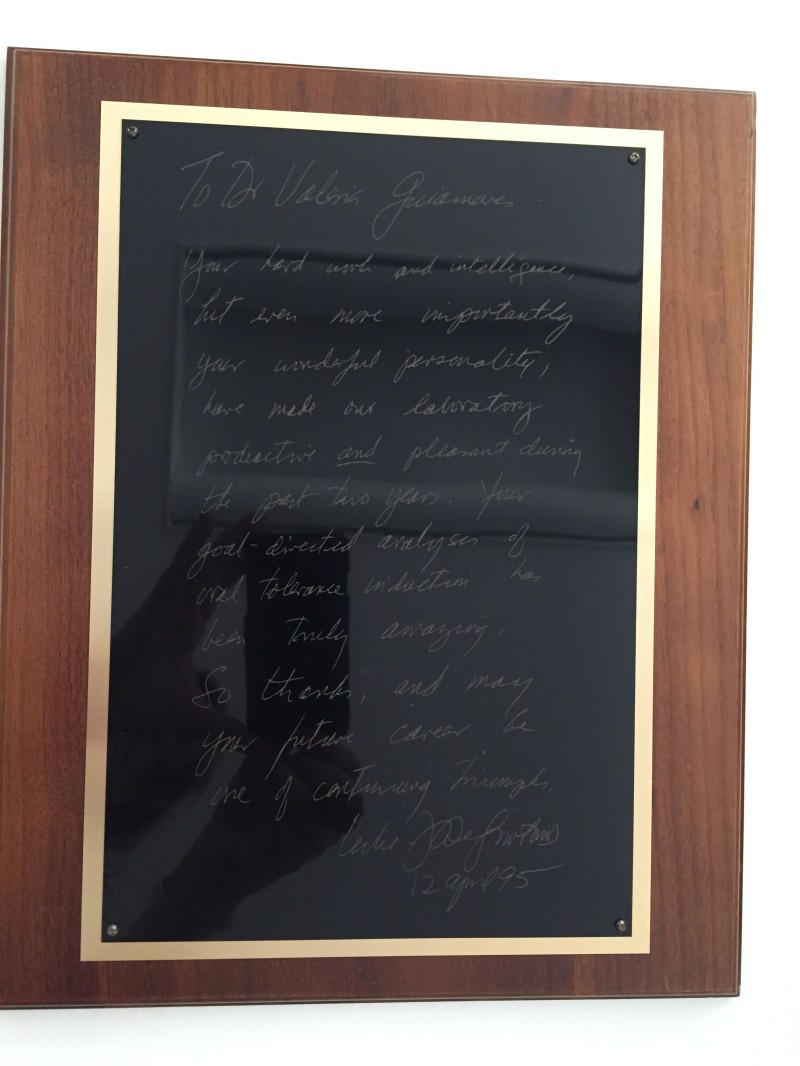 To Dr Valeria Guiamares
Your hard work and intelligence,
but even more importantly
your wonderful personality,
have made our laboratory
productive and pleasant during
the past two years. Your
goal-directed analyses of
oral tolerance induction has
been truly amazing.
So thanks, and may
your future career be
one of continuing triumphs.
Leslie
12 april 95